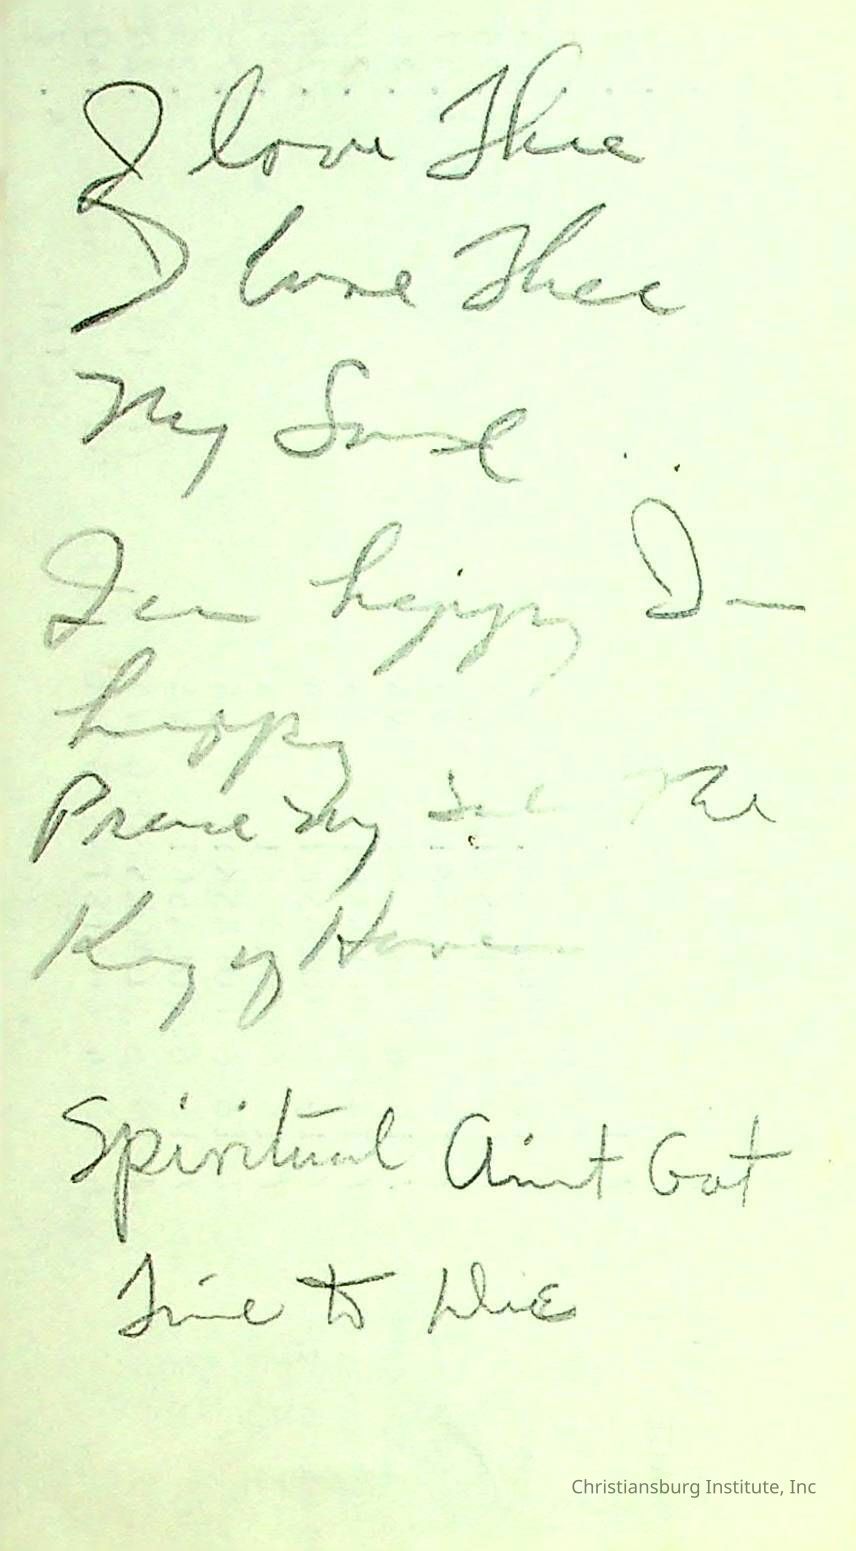 I love Thee
I love Thee
My Soul
I am happy I am
happy
Praise My Soul The
King of Heaven
Spiritual Aint Got
Time to Die
Christiansburg Institute, Inc